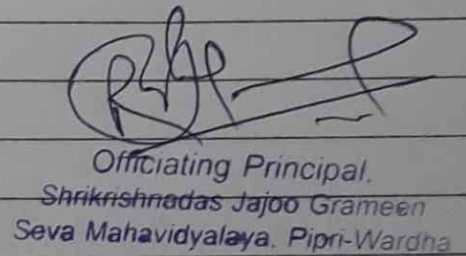 Officiating Principal.
Shrikrishnadas Jajoo Grameen
Seva Mahavidyalaya. Pipri-Wardha